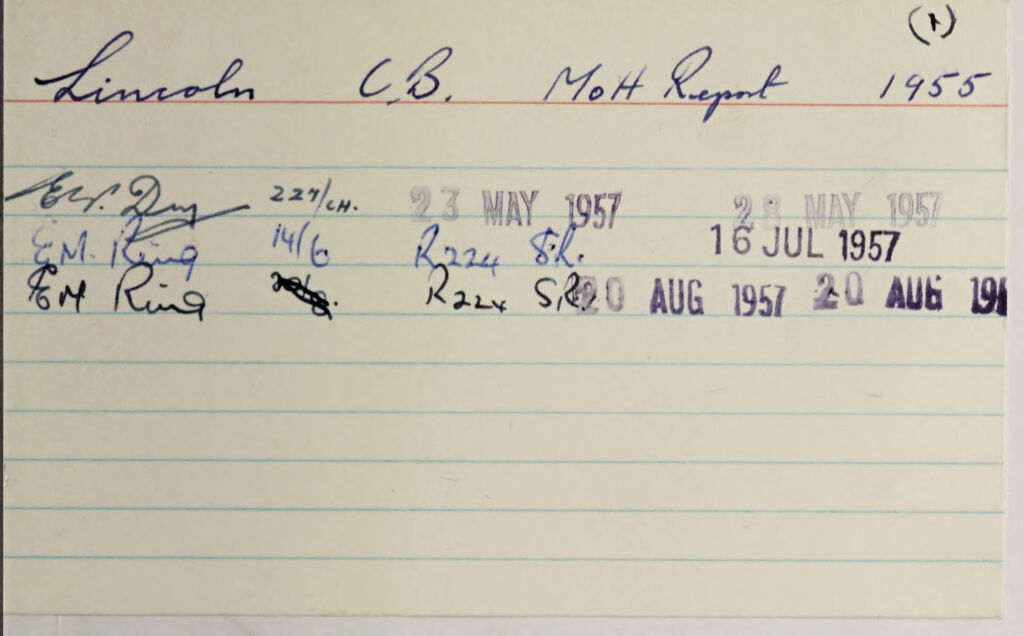 (1)
Lincoln C.B. MoH Report 1955
227/CH. 23 MAY 1957 28 MAY 1957
E.M. Ring 14/6 R224 S.R. 16 JUL 1957
EM Ring R224 S.R. 20 AUG 1957 20 AUG